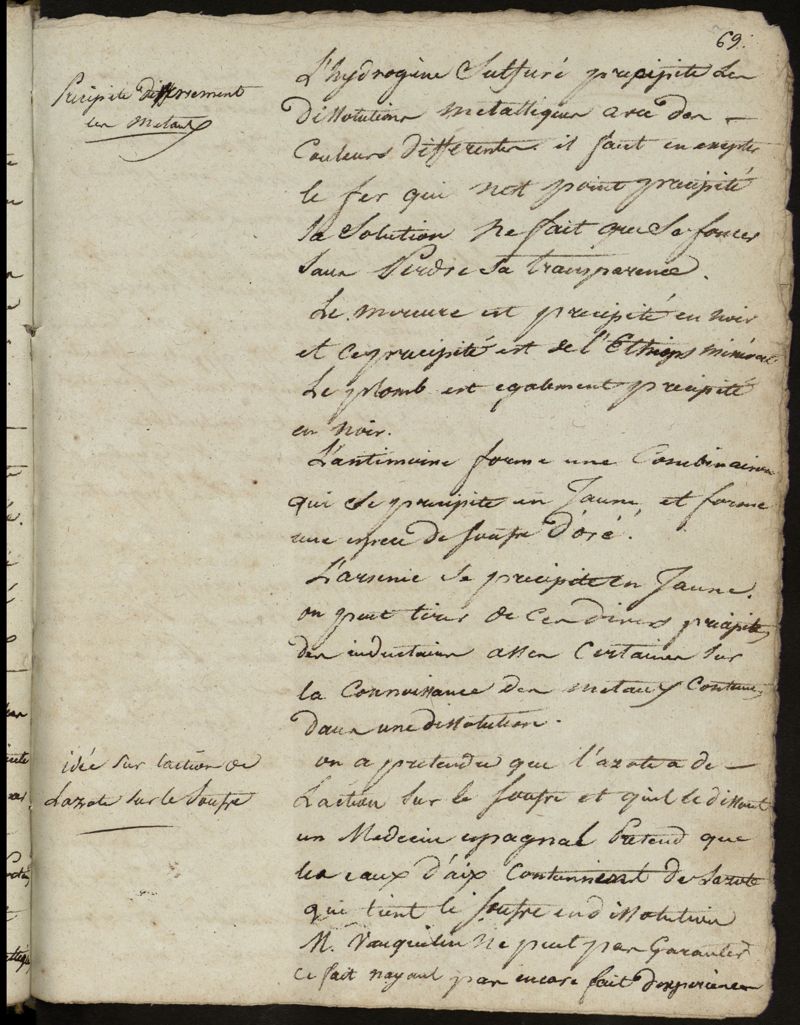 69.
Précipite differrement
les metaux
L'hydrogène Sulfuré précipite les
dissolutions metalliques avec des —
Couleurs différentes. il faut en exepter
le fer qui nest point précipité
la Solution ne fait que Se foncer
Sans Perdre Sa transparence.
Le mercure est précipité en noir
et ce précipité est de l'Ethiops minéral
Le plomb est egalement précipité
en noir.
L'antimoine forme une Combinaison
qui Se précipite en Jaune, et forme
une espece de Soufre D'oré.
L'arsenic Se précipite en Jaune.
on peut tirer de ces divers précipités
des inductions assez Certaines Sur
la Connoissance des metaux Contenus
dans une dissolution.
idée Sur l'action de
Lazote Sur le Soufre
on a pretendu que l'azote a de —
L'action Sur le Soufre et qu'il le dissout
un Medecin espagnol Pretend que
les eaux d'aix Contiennent de Lazote
qui tient le Soufre en dissolution
M. Vauquelin ne peut pas Garantir
Ce fait nayant pas encore fait d'experiences